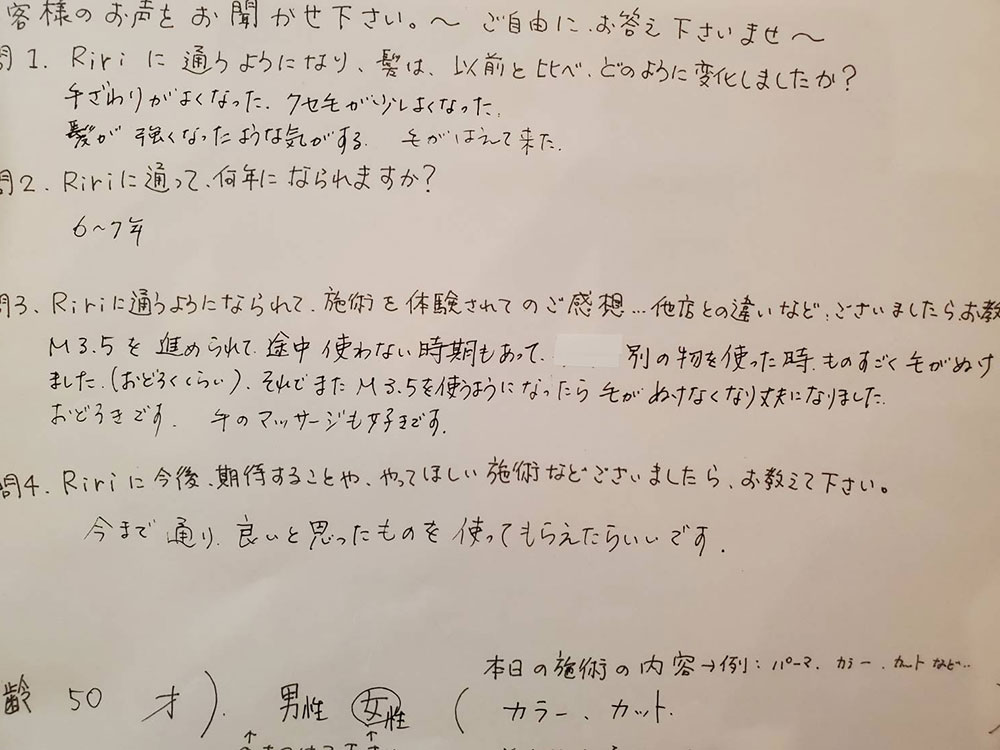 客様のお声をお聞かせ下さい。～ ご自由に、お答え下さいませ～
問1. Ririに通うようになり、髪は、以前と比べ、どのように変化しましたか?
手ざわりがよくなった、クセ毛が少しよくなった、
髪が強くなったような気がする。 毛がはえて来た.
問2. Ririに通って、何年になられますか?
6～7年
問3. Ririに通うようになられて、施術を体験されてのご感想…他店との違いなど、ございましたら、お教
M3.5を進められて、途中使わない時期もあって、 別の物を使った時、ものすごく毛がぬけ
ました。(おどろくくらい)、それでまたM3.5を使うようになったら毛がぬけなくなり丈夫になりました。
おどろきです。 手のマッサージも好きです。
問4. Ririに今後、期待することや、やってほしい施術などございましたら、お教えて下さい。
今まで通り、良いと思ったものを使ってもらえたらいいです。
本日の施術の内容→例:パーマ、カラー、カットなど…
齢 50 才). 男性 女性 ( カラー、カット.